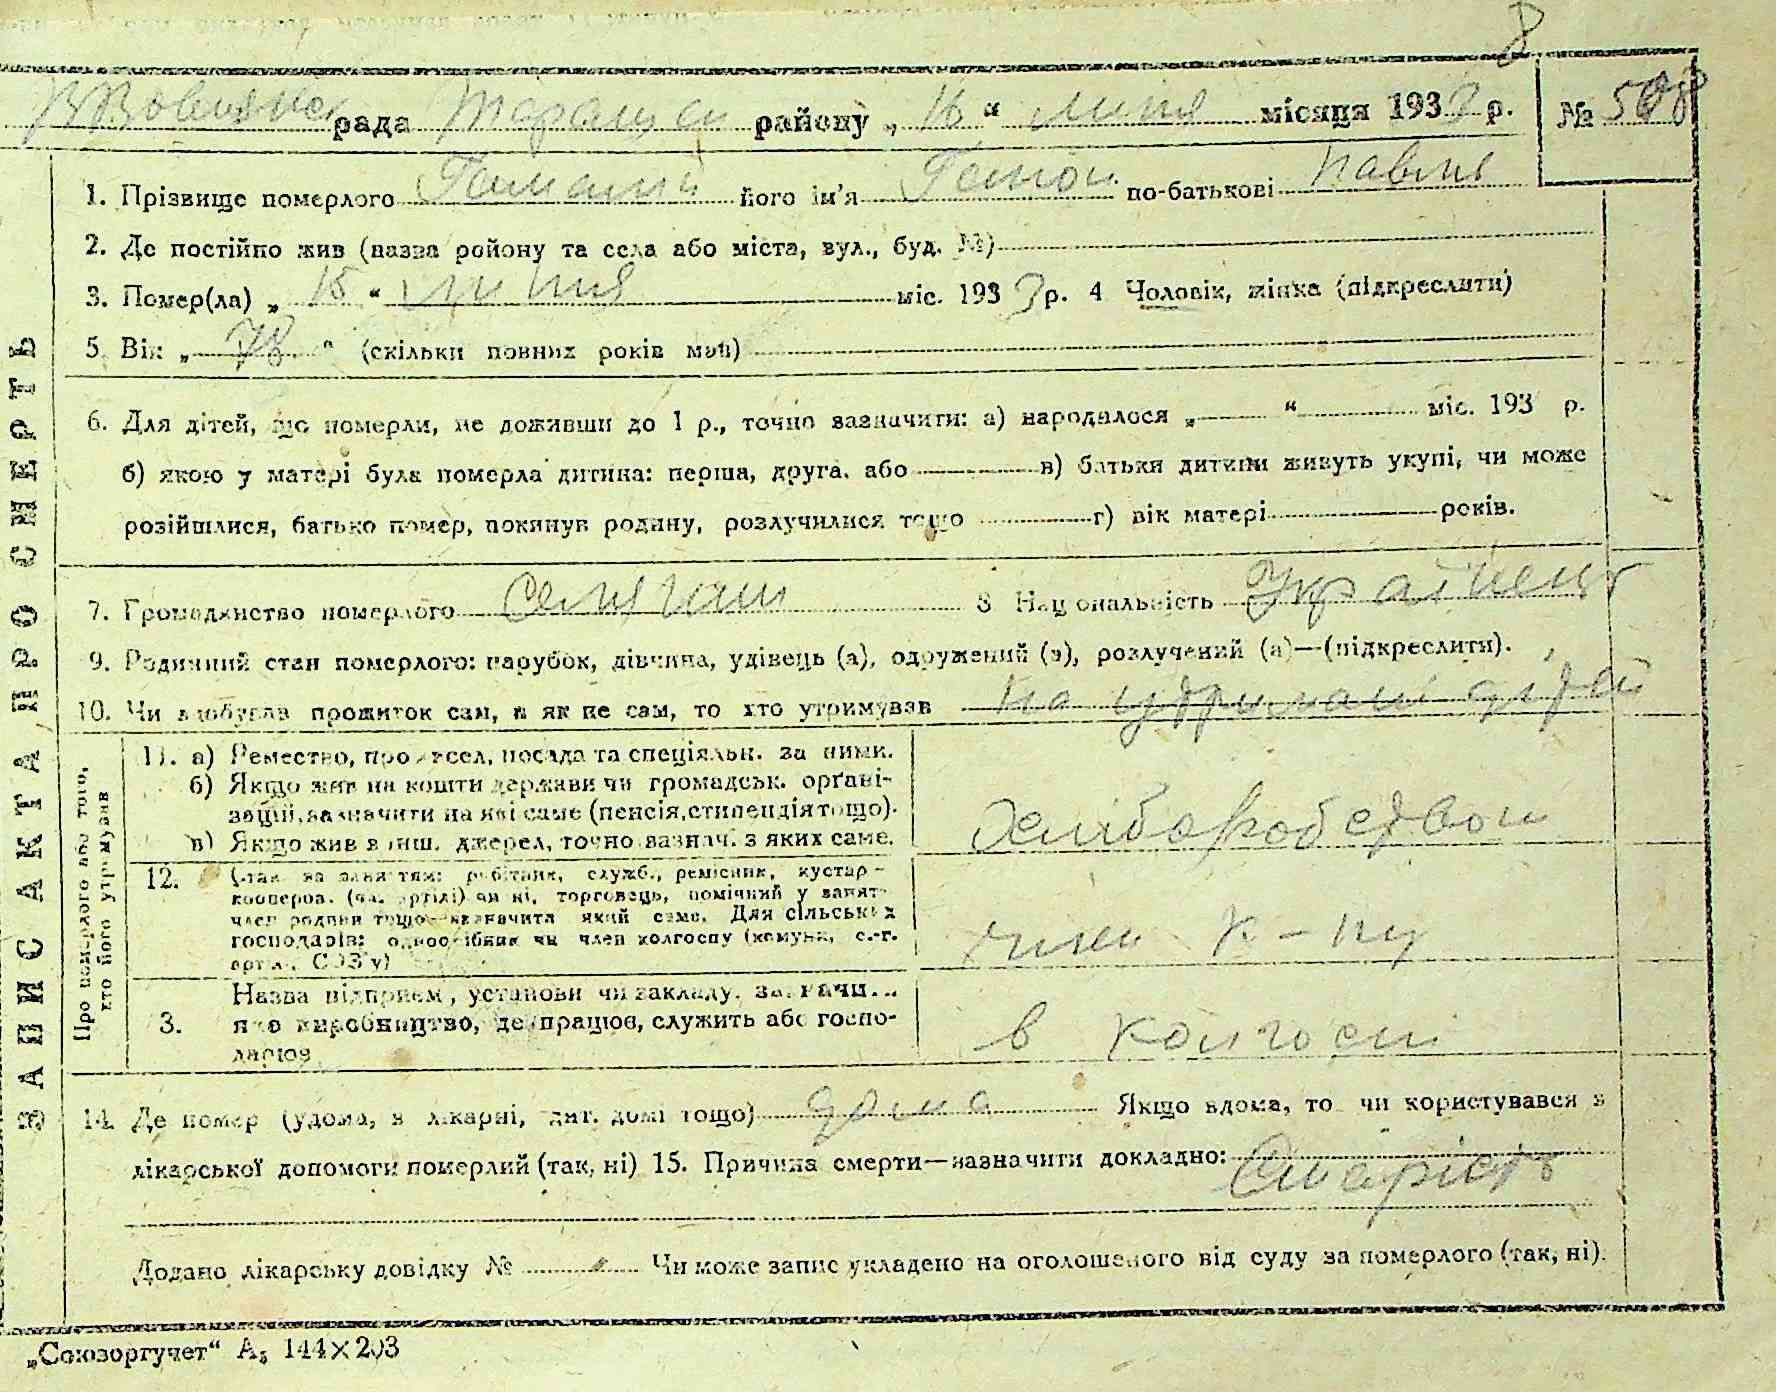 8
рада Тараща району „ 16 “ липня місяця 1933 р. № 508
1. Прізвище померлого його ім'я по-батькові Павло
2. Де постійно жив (назва ройону та села або міста, вул., буд. №)
3. Помер(ла) „ 15 “ липня міс. 1933 р. 4 Чоловік, жінка (підкреслити)
5. Вік „ 78 “ (скільки повних років мав)
6. Для дітей, що померли, не доживши до 1 р., точно зазначити: а) народилося „ “ міс. 193 р.
б) якою у матері була померла дитина: перша, друга. або в) батьки дитини живуть укупі, чи може
розійшлися, батько помер, покинув родину, розлучилися тощо г) вік матері років.
7. Громадянство померлого селянин 8 Національність Українець
9. Родинний стан померлого: парубок, дівчина, удівець (а), одружений (а), розлучений (а)—(підкреслити).
10. Чи здобував прожиток сам, а як не сам, то хто утримував на удримані дітей
ЗАПИС АКТА ПРО СМЕРТЬ
Про померлого або того, хто його утримував
11. а) Ремество, професел, посада та спеціяльн. за ними.
б) Якщо жив на кошти держави чи громадськ. орґані-
зацій, зазначити на які саме (пенсія, стипендія тощо).
в) Якщо жив з інш. джерел, точно зазнач. з яких саме.
хліборобством
12. Стан за заняттям: робітник, служб., ремісник, кустар –
коопероз. (чл. артілі) чи ні, торговець, помічний у занят-
член родини тощо—зазначити який саме. Для сільських
господарів: одноосібник чи член колгоспу (комуни, с.-г.
артіл. СОЗ'у)
член к-пу
3. Назва підприєм., установи чи закладу, зазначи...
яке виробництво, де працює, служить або госпо-
дарює
в колгоспі
14. Де помер (удома, в лікарні, дит. домі тощо) дома Якщо вдома, то чи користувався з
лікарської допомоги померлий (так, ні) 15. Причина смерти—зазначити докладно:
Старість
Додано лікарську довідку № Чи може запис укладено на оголошеного від суду за померлого (так, ні).
„Союзоргучет“ А₅ 144×203